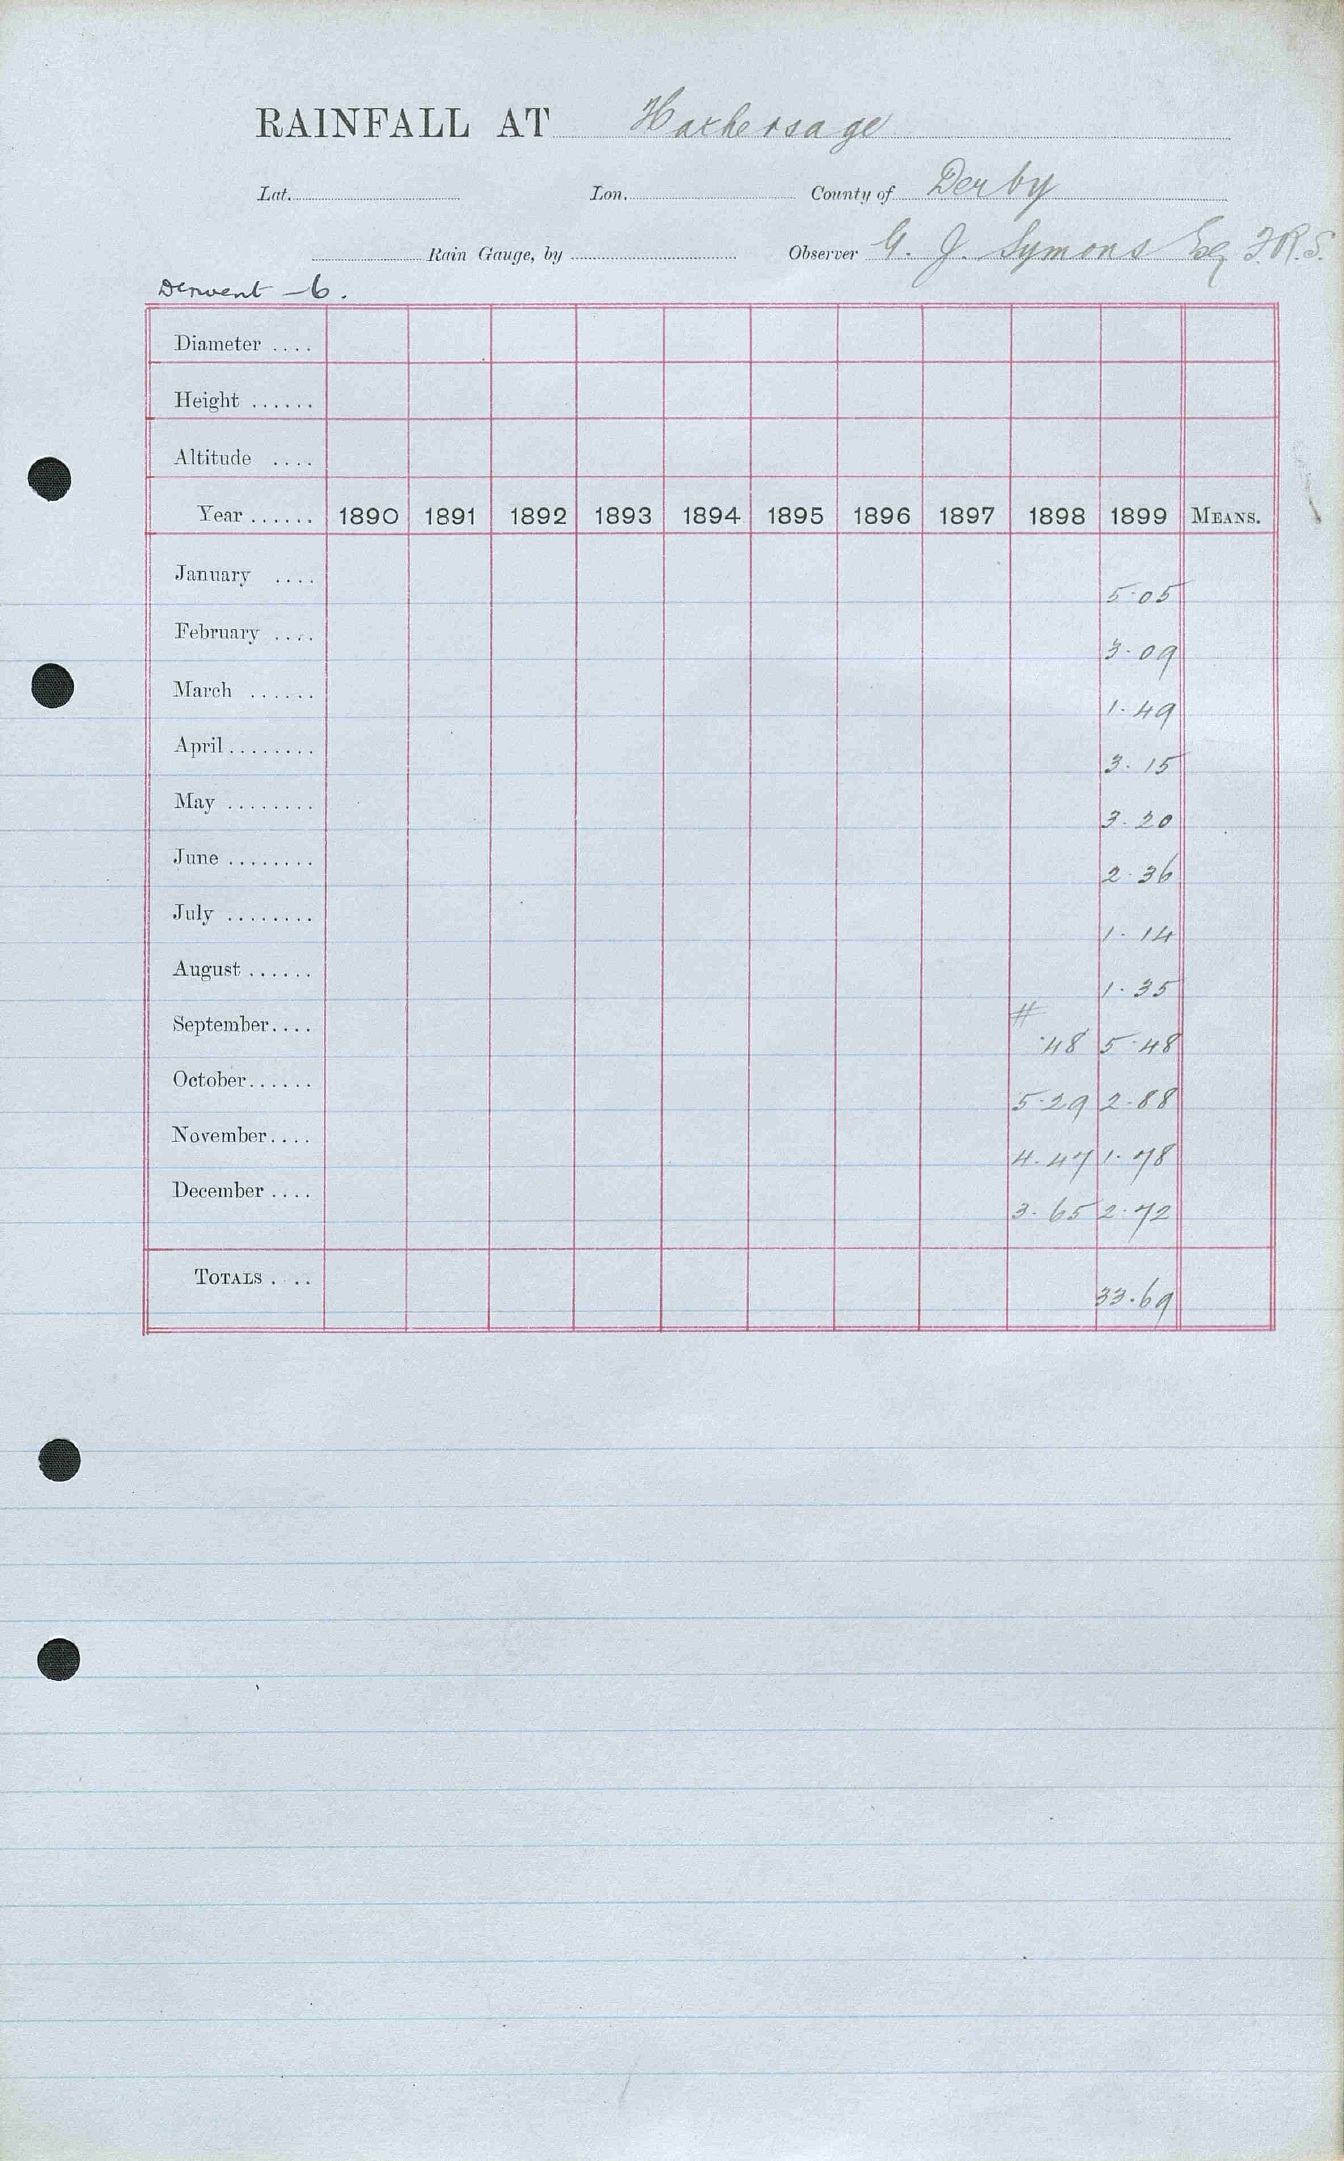 RAINFALL AT Hathersage
Lat. Lon. County of Derby
Rain Gauge, by Observer G. J. Symons Esq F.R.S.
Derwent - 6.
Diameter ....
Height ......
Altitude ....
Year ...... 1890 1891 1892 1893 1894 1895 1896 1897 1898 1899 MEANS.
January .... 5.05
February .... 3.09
March ...... 1.49
April ........ 3.15
May ........ 3.20
June ........ 2.36
July ........ 1.14
August ...... 1.35
#
September.... .48 5.48
October...... 5.29 2.88
November.... 4.47 1.78
December .... 3.65 2.72
TOTALS .... 33.69